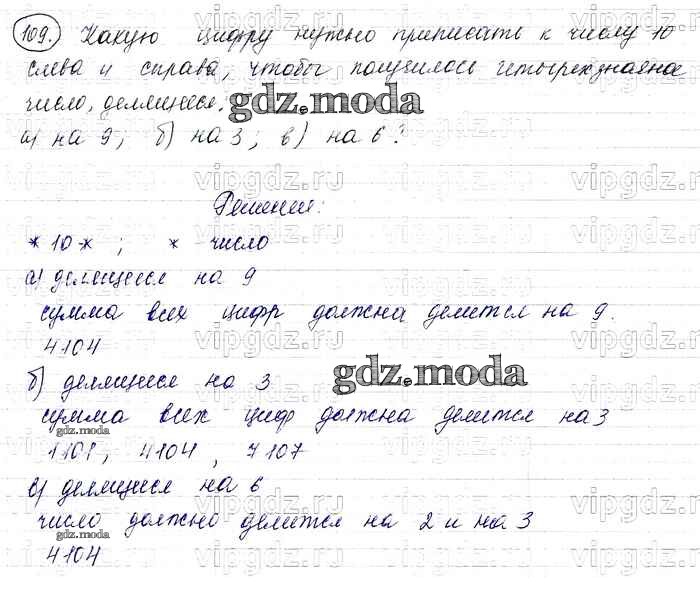 109. Какую цифру нужно приписать к числу 10
слева и справа, чтобы получилось четырехзначное
число, делящиеся.
gdz.moda
а) на 9; б) на 3; в) на 6?
Решение:
*10*; * число
а) делящиеся на 9
сумма всех цифр должна делится на 9.
4104
б) делящиеся на 3
gdz.moda
сумма всех циф должна делится на 3
gdz.moda
1101, 4104, 7107
в) делящиеся на 6
число должно делится на 2 и на 3
gdz.moda
4104
vipgdz.ru